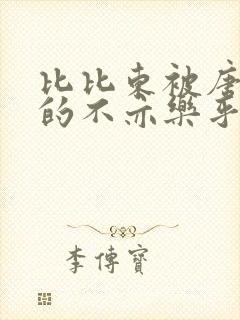 比比东被唐
的不亦樂乎
李傳寶